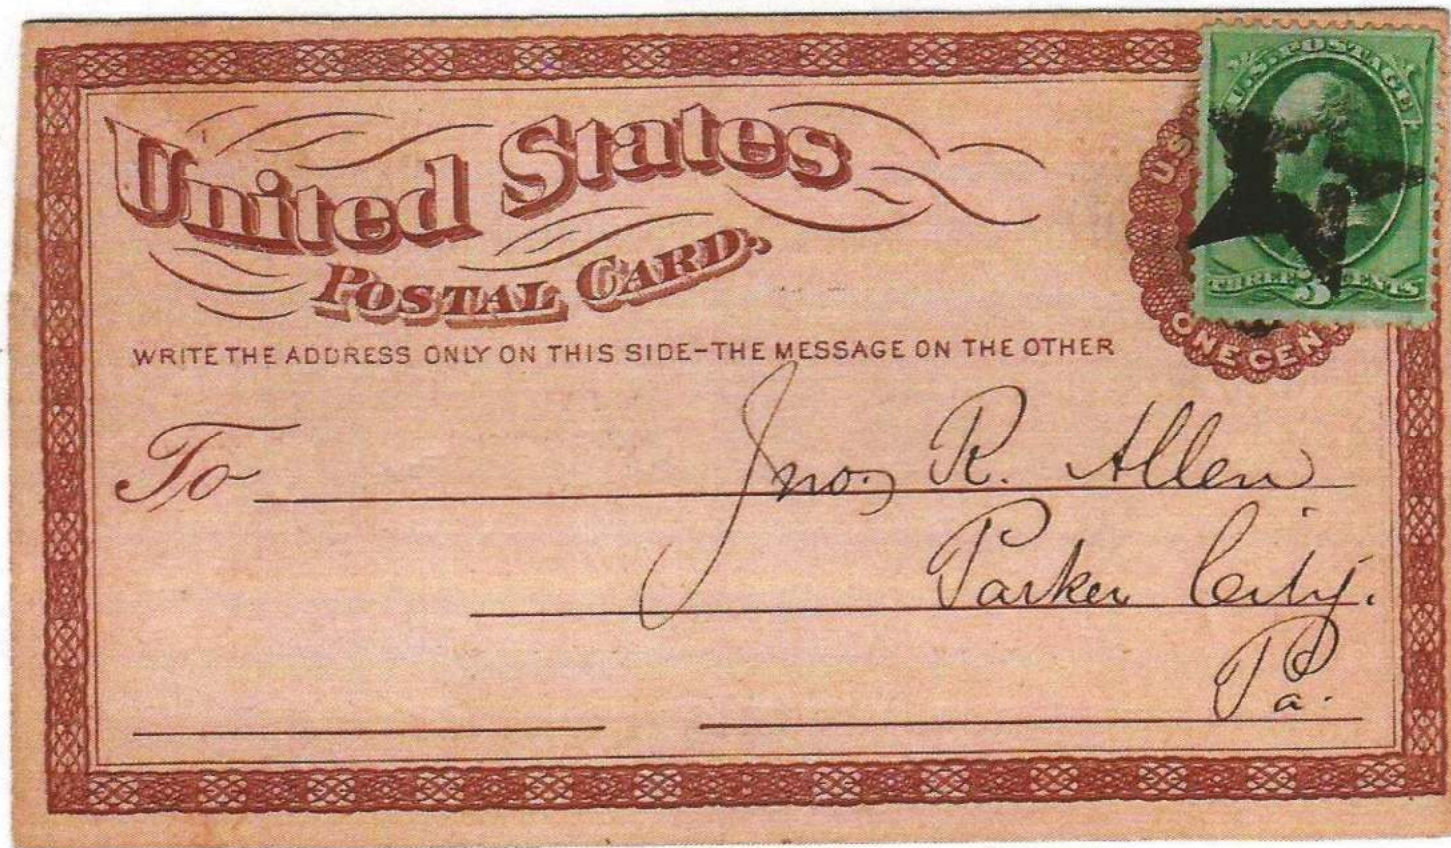 United States
POSTAL CARD.
U.S. POSTAGE
THREE 3 CENTS
U S
ONE CEN
WRITE THE ADDRESS ONLY ON THIS SIDE-THE MESSAGE ON THE OTHER
To Jno. R. Allen
Parker City.
Pa.